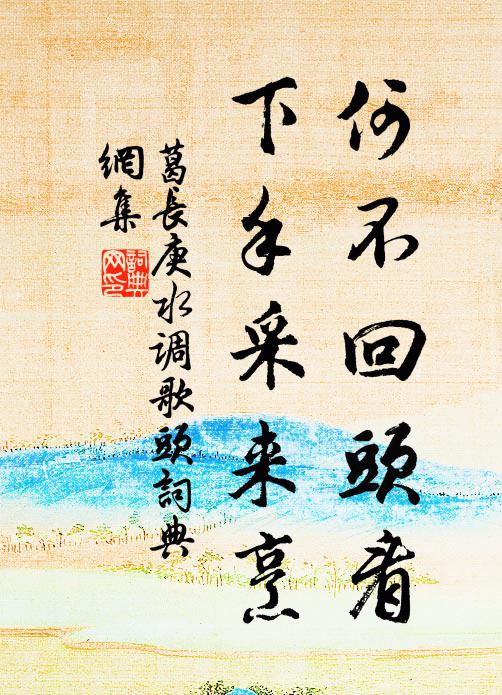 何不回頭看
下手采来烹
葛長庚水调歌頭詞典
網集
詞典
网印